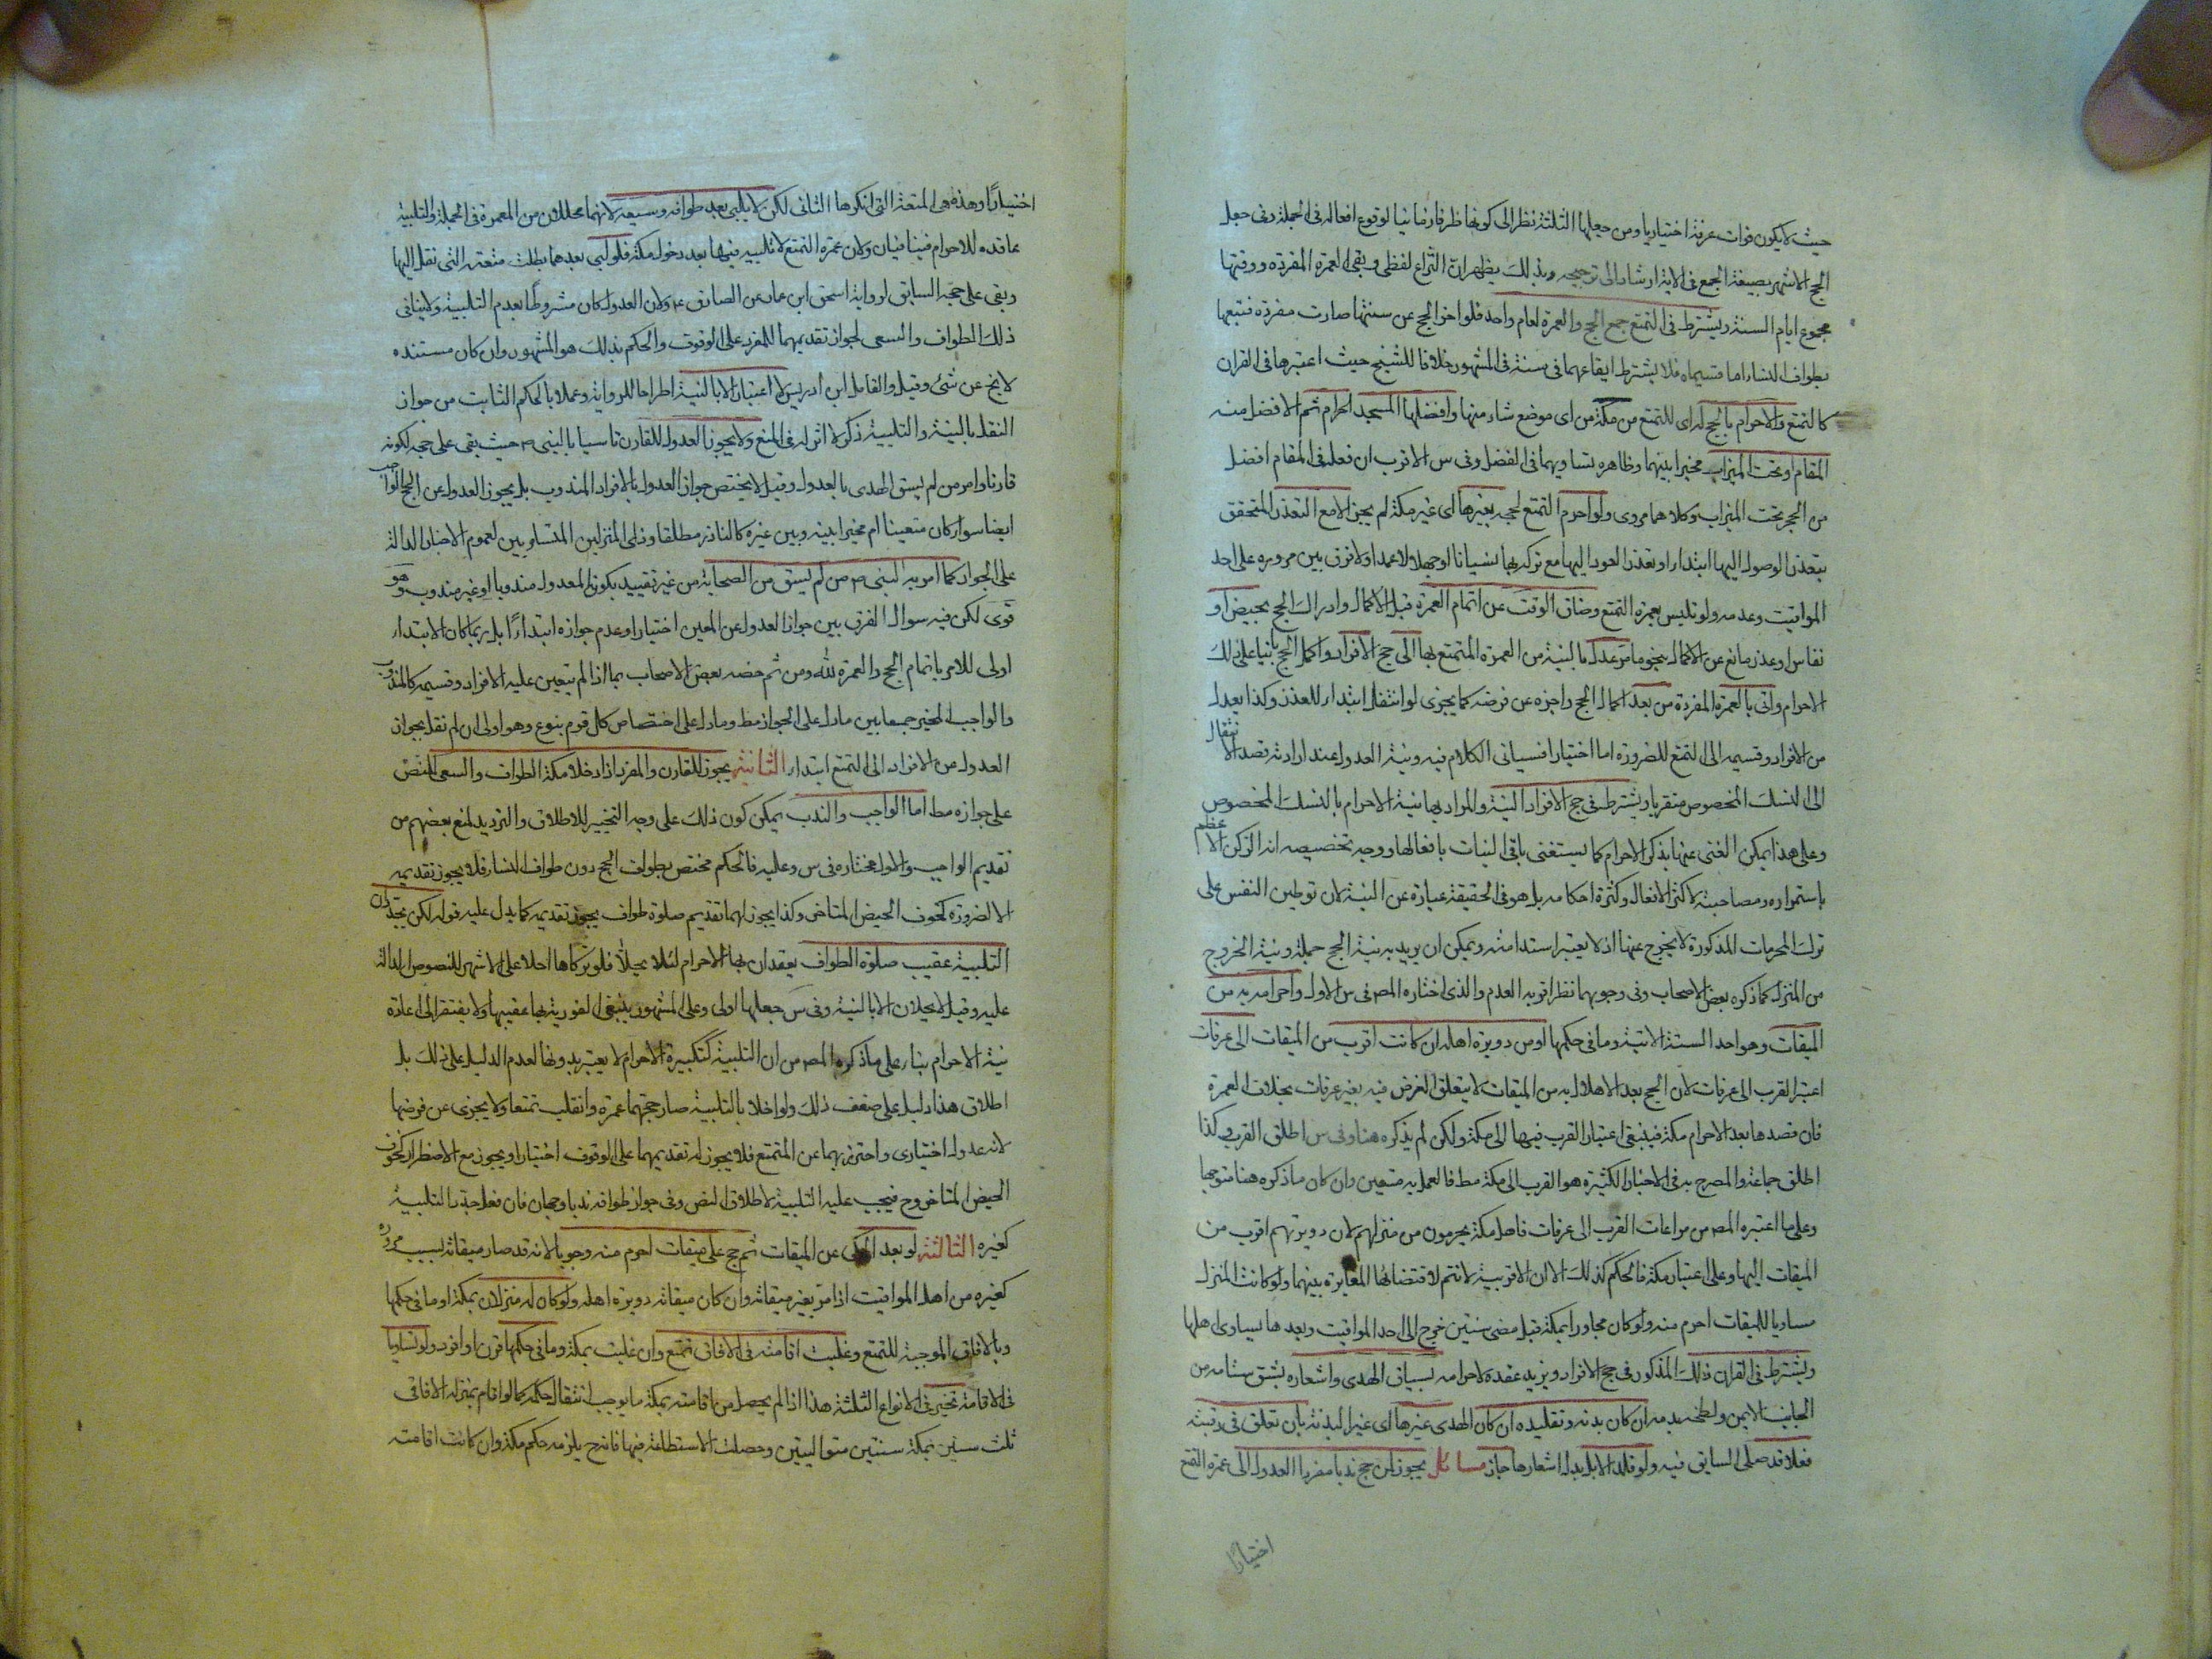 حيث لا يكون فوات عرفة اختياريا ومن جعلها الثلثة نظر الى كونها ظرفا زمانيا لوقوع افعاله فى الجملة وفى جعل
الحج الاشهر بصيغة الجمع فى الاية ارشاد الى ترجيحه وبذلك يظهر ان النزاع لفظى وبقى العمرة المفردة ووقتها
مجموع ايام السنة ويشترط فى التمتع جمع الحج والعمرة لعام واحد فلو اخر الحج عن سنتها صارت مفردة فتتبعها
بطواف النساء اما قسيماه فلا يشترط ايقاعهما فى سنة فى المشهور خلافا للشيخ حيث اعتبرها فى القران
كالتمتع والاحرام بالحج له اى للتمتع من مكة من اى موضع شاء منها وافضلها المسجد الحرام ثم الافضل منه
المقام او تحت الميزاب مخيرا بينهما وظاهره تساويهما فى الفضل وفى س الاقرب ان فعله فى المقام افضل
من الحجر تحت الميزاب وكلاهما مروى ولو احرم المتمتع لحجه بغيرها اى غير مكة لم يجز الا مع التعذر المتحقق
بتعذر الوصول اليها ابتداء او تعذر العود اليها مع تركه بها نسيانا او جهلا لا عمدا ولا فرق بين مروره على احد
المواقيت وعدمه ولو تلبس بعمرة التمتع وضاق الوقت عن اتمام العمرة قبل الاكمال وادراك الحج بحيض او
نفاس او عذر مانع عن الاكمال بنحو ما مر عدل بالنية من العمرة المتمتع بها الى حج الافراد واكمل الحج بانيا على ذلك
الاحرام واتى بالعمرة المفردة من بعد اكمال الحج واجزءه عن فرضه كما يجزى لو انتقل ابتداء للعذر وكذا يعدل
من الافراد وقسيمه الى التمتع للضرورة اما اختيارا فسياتى الكلام فيه ونية العدول عند ارادته قصد الانتقال
الى النسك المخصوص متقربا ويشترط فى حج الافراد النية والمراد بها نية الاحرام بالنسك المخصوص
وعلى هذا يمكن الغنى عنها بذكر الاحرام كما يستغنى باقى النيات بافعالها ووجه تخصيصه انه الركن الاعظم
باستمراره ومصاحبته لاكثر الافعال وكثرة احكامه بل هو فى الحقيقة عبارة عن النية لان توطين النفس على
ترك المحرمات المذكورة لا يخرج عنها اذ لا يعتبر استدامته ويمكن ان يريد به نية الحج جملة ونية الخروج
من المنزل كما ذكره بعض الاصحاب وفى وجوبهما نظر اقربه العدم والذى اختاره المص فى س الاول واحرامه به من
الميقات وهو احد الستة الاتية وما فى حكمها او من دويرة اهله ان كانت اقرب من الميقات الى عرفات
اعتبر القرب الى عرفات لان الحج بعد الاهلال به من الميقات لا يتعلق الغرض فيه بغير عرفات بخلاف العمرة
فان قصدها بعد الاحرام مكة فينبغى اعتبار القرب فيها الى مكة ولكن لم يذكره هنا وفى س اطلق القرب كذا
اطلق جماعة والمصرح به فى الاخبار الكثيرة هو القرب الى مكة مط فالعمل به متعين وان كان ما ذكره هنا متوجها
وعلى ما اعتبره المص من مراعات القرب الى عرفات فاهل مكة يحرمون من منزلهم لان دويرتهم اقرب من
الميقات اليها وعلى اعتبار مكة فالحكم كذلك الا ان الاقربية لا تتم لاقتضائها المغايرة بينهما ولو كانت المنزل
مساويا للميقات احرم منه ولو كان مجاورا بمكة قبل مضى سنتين خرج الى احد المواقيت وبعدها يساوى اهلها
ويشترط فى القران ذلك المذكور فى حج الافراد ويزيد عقده لاحرامه بسياق الهدى واشعاره بشق سنامه من
الجانب الايمن ولطخه بدمه ان كان بدنه وتقليده ان كان الهدى غيرها اى غير البدنة بان تعلق فى رقبته
نعلا قد صلى السايق فيه ولو قلد الابل بدل اشعارها جاز مسائل يجوز لمن حج ندبا مفردا العدول الى عمرة التمتع
اختيارا
اختيارًا وهذه هى المتعة التى انكرها الثانى لكن لا يلبى بعد طوافه وسعيه لانهما محللان من العمرة فى الجملة والتلبية
عاقده للاحرام فيتنافيان ولان عمرة التمتع لا تلبيه فيها بعد دخول مكة فلو لبى بعدهما بطلت متعته التى نقل اليها
وبقى على حجه السابق لرواية اسحق ابن عمار عن الصادق ع ولان العدول كان مشروطا بعدم التلبية ولا ينافى
ذلك الطواف والسعى لجواز تقديمهما للمفرد على الوقوف والحكم بذلك هو المشهور وان كان مستنده
لا يخ عن شئ وقيل والقائل ابن ادريس لا اعتبار الا بالنية اطراحا للرواية وعملا بالحكم الثابت من جواز
النقل بالنية والتلبية ذكر لا اثر له فى المنع ولا يجوز العدول للقارن تاسيا بالنبى ص حيث بقى على حجه لكونه
قارنا وامر من لم يسق الهدى بالعدول وقيل لا يختص جواز العدول بالافراد المندوب بل يجوز العدول عن الحج الواجب
ايضا سواء كان متعينا ام مخيرا بينه وبين غيره كالناذر مطلقا وذى المنزلين المتساويين لعموم الاخبار الدالة
على الجواز كما امر به النبى ص من لم يسق من الصحابة من غير تقييد بكون المعدول مندوبا او غير مندوب وهو
قوى لكن فيه سوال الفرق بين جواز العدول عن المعين اختيارا وعدم جوازه ابتداءًا بل ربما كان الابتداء
اولى للامر باتمام الحج والعمرة لله ومن ثم خصه بعض الاصحاب بما اذا لم يتعين عليه الافراد وقسيمه كالمندوب
والواجب المخير جمعا بين ما دل على الجواز مط وما دل على اختصاص كل قوم بنوع وهو اولى ان لم نقل بجواز
العدول من الافراد الى التمتع ابتداء الثانية يجوز للقارن والمفرد اذا دخلا مكة الطواف والسعى للنص
على جوازه مط اما الواجب والندب يمكن كون ذلك على وجه التخيير للاطلاق والترديد لمنع بعضهم من
تقديم الواجب والاول مختاره فى س وعليه فالحكم مختص بطواف الحج دون طواف النساء فلا يجوز تقديمه
الا لضرورة كخوف الحيض المتاخر وكذا يجوز لهما تقديم صلوة طواف يجوز تقديمه كما يدل عليه قوله لكن يجددان
التلبية عقيب صلوة الطواف يعقدان بها الاحرام لئلا يحلّا فلو تركاها احلا على الاشهر للنصوص الدالة
عليه وقيل لا يحلان الا بالنية وفى س جعلها اولى وعلى المشهور ينبغى الفورية بها عقيبها ولا يفتقر الى اعادة
نية الاحرام بناء على ما ذكره المص من ان التلبية كتكبيرة الاحرام لا يعتبر بدونها لعدم الدليل على ذلك بل
اطلاق هذا دليل على ضعف ذلك ولو اخلا بالتلبية صار حجهما عمرة وانقلب تمتعا ولا يجزى عن فرضها
لانه عدول اختيارى واحترز بهما عن المتمتع فلا يجوز له تقديمهما على الوقوف اختيارا ويجوز مع الاضطرار كخوف
الحيض المتاخر وح فيجب عليه التلبية لاطلاق النص وفى جواز طوافه ندبا وجهان فان فعل جدد التلبية
كغيره الثالثة لو بعد المكى عن الميقات ثم حج على ميقات احرم منه وجوبا لانه قد صار ميقاته بسبب مروره
كغيره من اهل المواقيت اذا مر بغير ميقاته وان كان ميقاته دويرة اهله ولو كان له منزلان بمكة او ما فى حكمها
وبالافاق الموجبة للتمتع وغلبت اقامته فى الافاق تمتع وان غلبت بمكة وما فى حكمها قرن او افرد ولو تساويا
فى الاقامة تخير فى الانواع الثلثة هذا اذا لم يحصل من اقامته بمكة ما يوجب انتقال حكمه كما لو اقام بمنزله الافاقى
ثلث سنين بمكة سنتين متواليتين وحصلت الاستطاعة فيها فانه ح يلزمه حكم مكة وان كانت اقامته